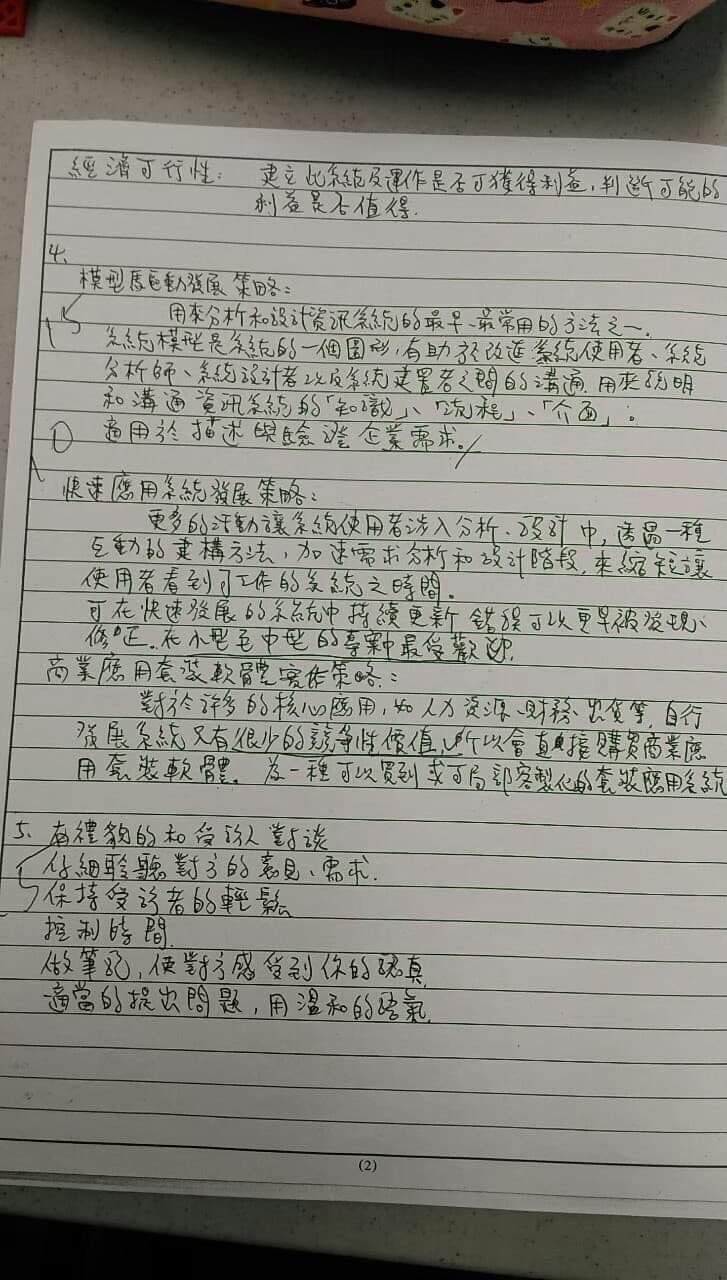 經濟可行性: 建立此系統及運作是否可獲得利益,判斷可能的
利益是否值得.
4.
模型驅動發展策略:
用來分析和設計資訊系統的最早、最常用的方法之一.
系統模型是系統的一個圖形,有助於改進系統使用者、系統
分析師、系統設計者以及系統建置者之間的溝通.用來說明
和溝通資訊系統的「知識」、「流程」、「介面」。
適用於描述與驗證企業需求。
快速應用系統發展策略:
更多的活動讓系統使用者涉入分析、設計中,透過一種
互動的建構方法,加速需求分析和設計階段,來縮短讓
使用者看到可工作的系統之時間。
可在快速發展的系統中持續更新 錯誤可以更早被發現、
修正.在小型至中型的專案中最受歡迎.
商業應用套裝軟體實作策略:
對於許多的核心應用,如人力資源、財務、出貨等,自行
發展系統只有很少的競爭性價值,所以會直接購買商業應
用套裝軟體.為一種可以買到或可局部客製化的套裝應用系統
5. 有禮貌的和受訪人對談
仔細聆聽對方的意見、需求.
保持受訪者的輕鬆
控制時間.
做筆記,使對方感受到你的認真
適當的提出問題,用溫和的語氣.
(2)